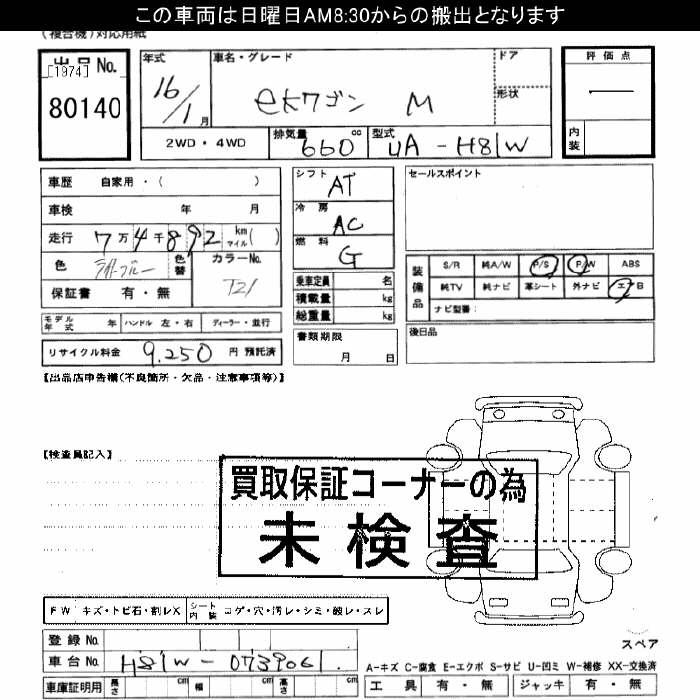 この車両は日曜日AM8:30からの搬出となります
(複合機)対応用紙
出品 No.
[1974]
80140
年式
16/1 月
車名・グレード
ekワゴン M
ドア
形状
評価点
—
内装
2WD・4WD
排気量 660 cc
型式 UA-H81W
車歴 自家用・( )
車検 年 月
走行 7万4千892 km マイル( )
色 ライトブルー 色替
カラーNo. T21
保証書 有・無
シフト AT
冷房 AC
燃料 G
乗車定員 名
積載量 kg
総重量 kg
セールスポイント
装備品
S/R 純A/W P/S P/W ABS
純TV 純ナビ 革シート 外ナビ エアB
ナビ型番:
モデル年式 年 ハンドル 左・右 ディーラー・並行
書類期限
月 日
後日品
リサイクル料金 9,250 円 預託済
【出品店申告欄(不良箇所・欠品・注意事項等)】
【検査員記入】
買取保証コーナーの為
未検査
FW キズ・トビ石・割レX シート内装 コゲ・穴・汚レ・シミ・破レ・スレ
登録 No.
車台 No. H81W-0739061
スペア
A-キズ C-腐食 E-エクボ S-サビ U-凹ミ W-補修 XX-交換済
車庫証明用 長さ cm 幅 cm 高さ cm
工具 有・無 ジャッキ 有・無